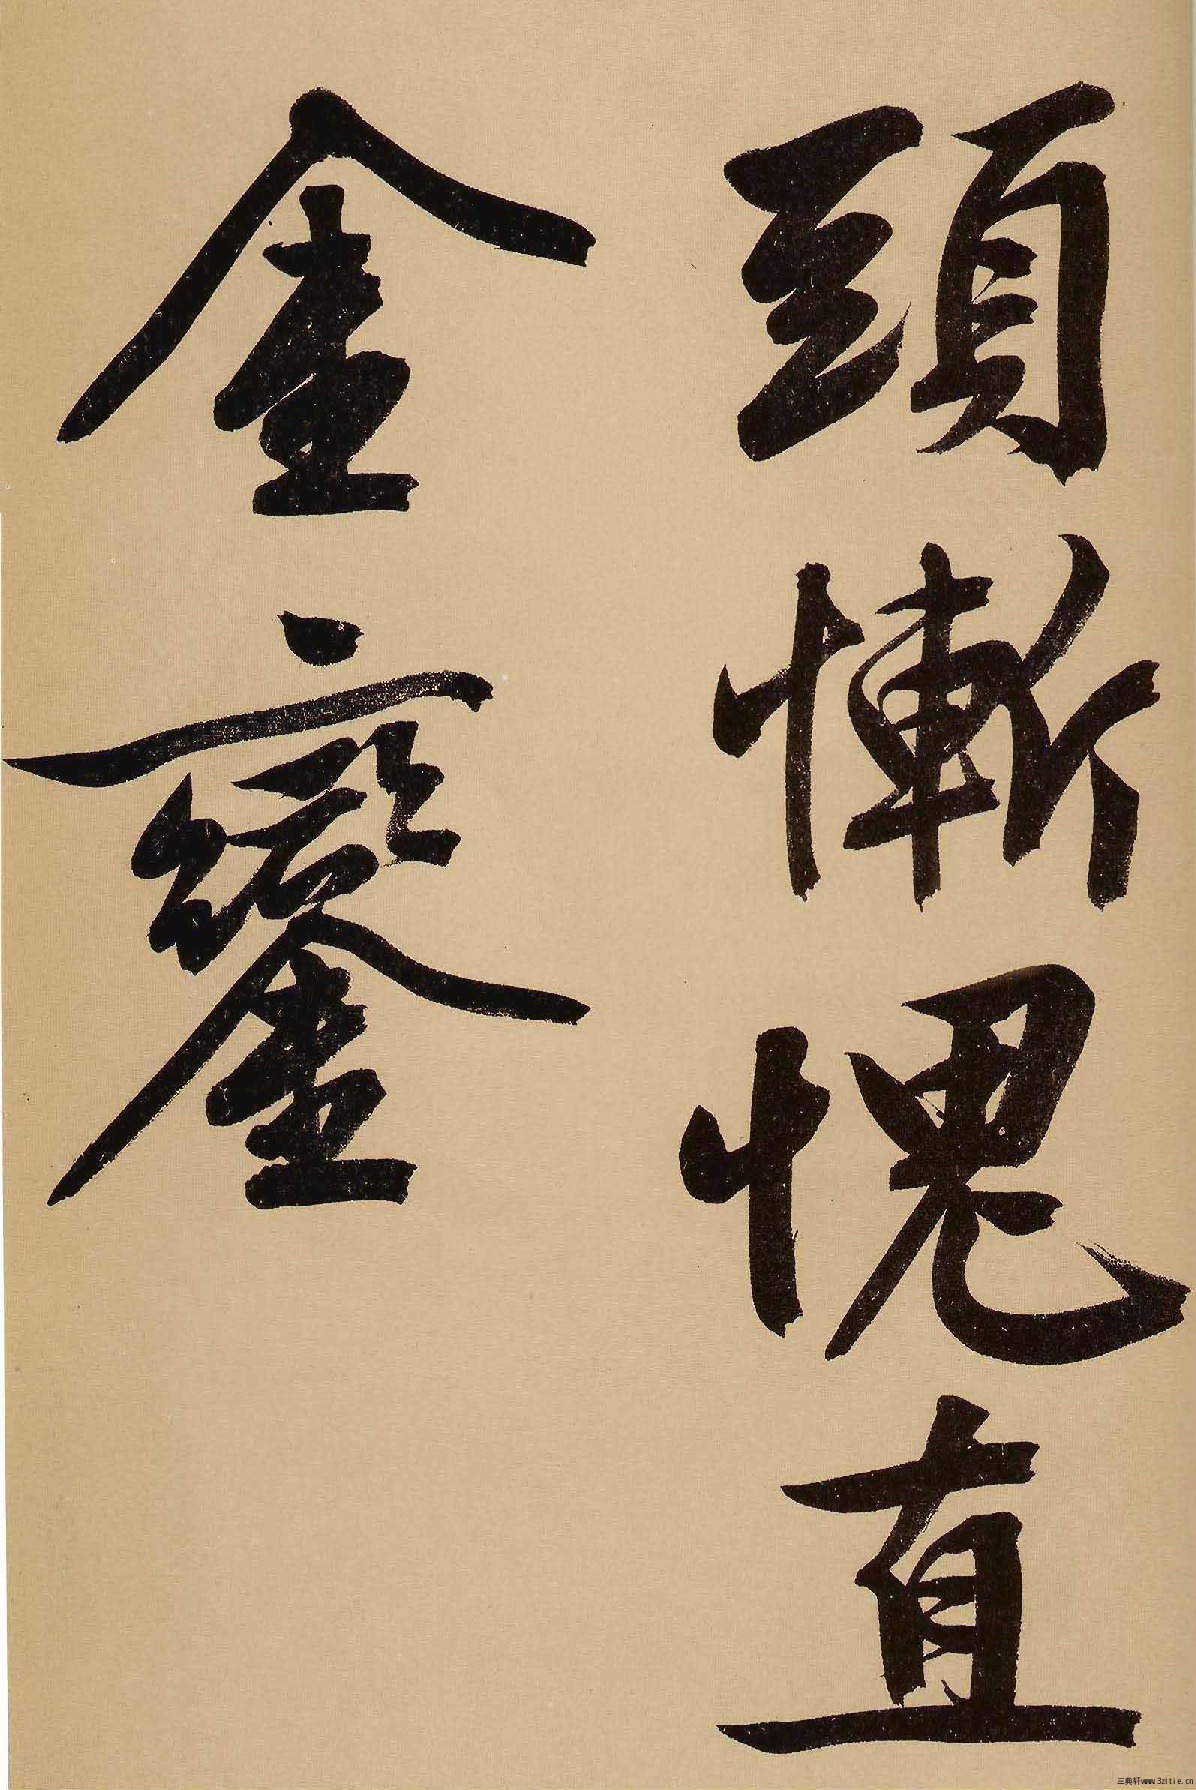 頭慚愧直
金鑾
三典轩www.3zitie.cn